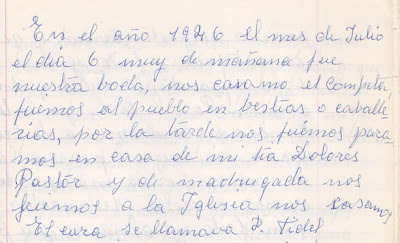 En el año 1946 el mes de Julio
el dia 6 muy de mañana fue
nuestra boda, nos casamo el Compita
fuemos al pueblo en bestias o caballe
rias, por la tarde nos fuemos para-
mos en casa de mi tia Dolores
Pastor y de madrugada nos
fuemos a la Iglesia nos casamos
El cura se llamava P. Fidel